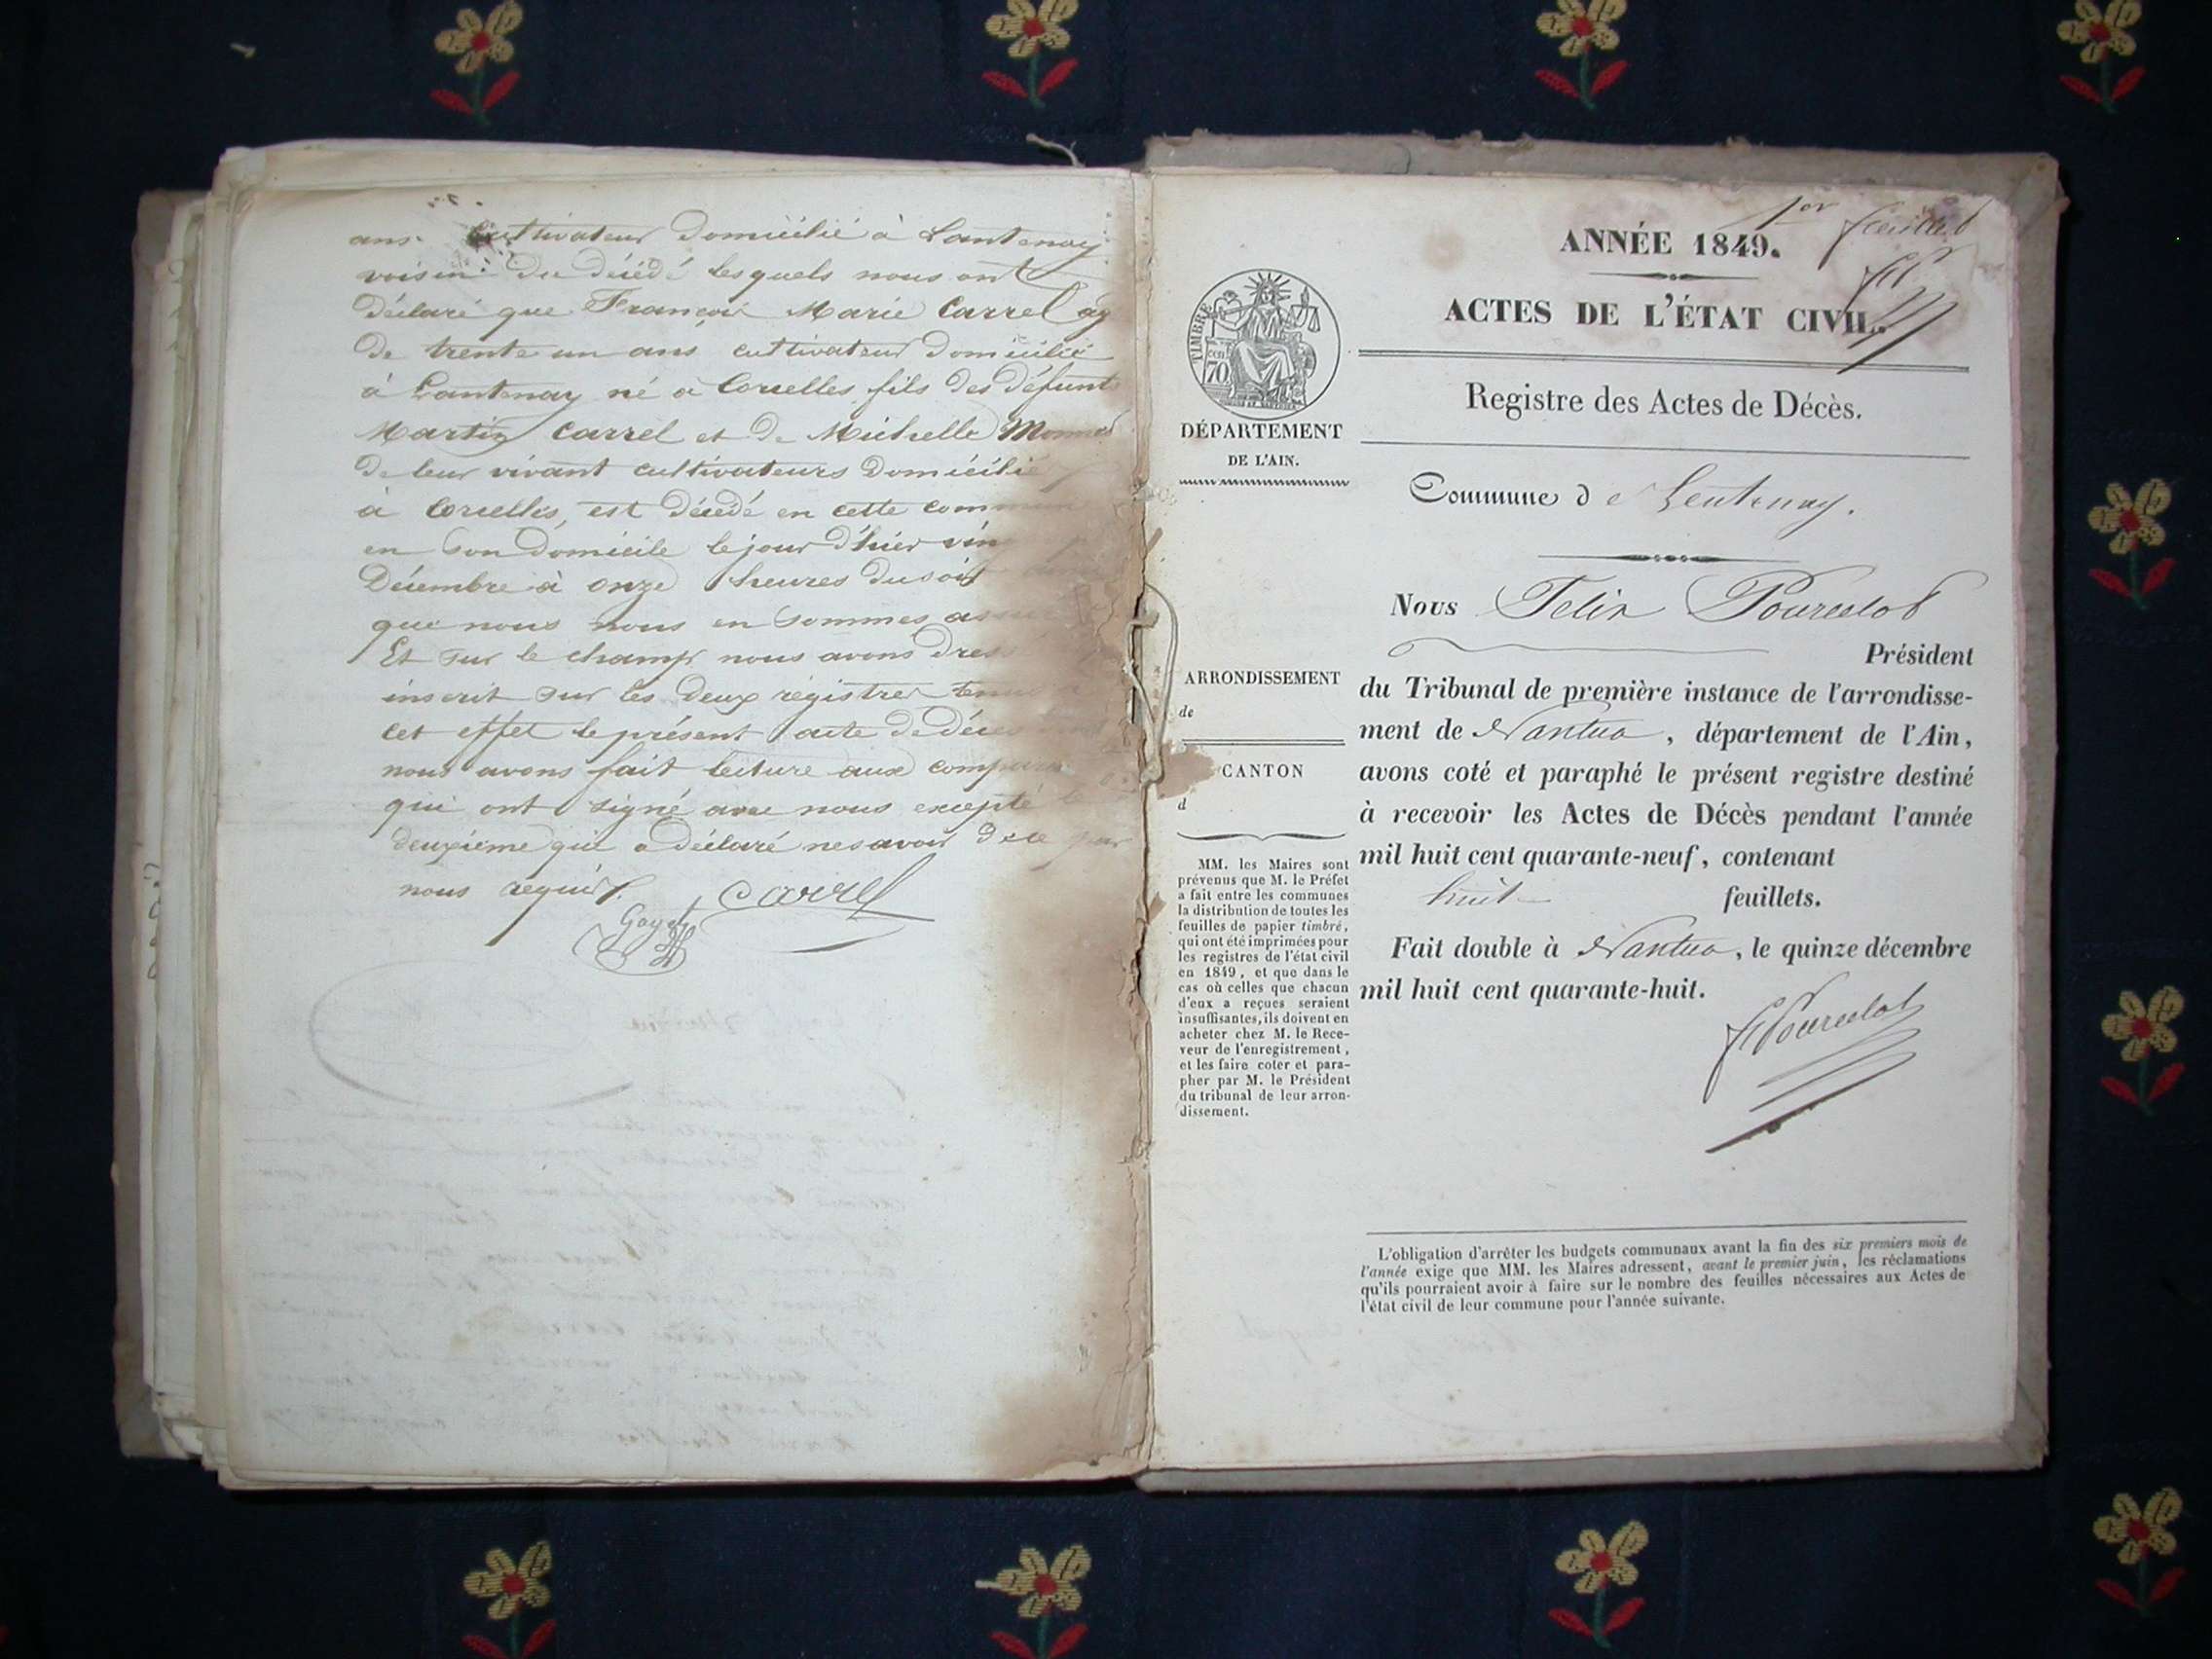 ans. Cultivateur domicilié à Lantenay
voisin du décédé lesquels nous ont
déclaré que François Marie Carrel ag
de trente un ans cultivateur domicilié
à Lantenay né à Corcelles fils des défunts
Martin Carrel et de Michelle
de leur vivant cultivateurs domicilié
à Corcelles, est décédé en cette commun
en son domicile le jour d'hier vin
Décembre à onze heures du soir
que nous nous en sommes
Et sur le champ nous avons dres
inscrit sur les deux régistres tenus
cet effet le présent acte de déces
nous avons fait lecture aux compar
qui ont signé avec nous excepté le
deuxième qui a déclaré ne savoir de ce par
nous requis.
Carrel
Goyet
1er feuillet
ANNÉE 1849.
ACTES DE L'ÉTAT CIVIL.
TIMBRE
70
Registre des Actes de Décès.
DÉPARTEMENT
DE L'AIN.
Commune de Lentenay.
Nous Felix Pourcelot
Président
du Tribunal de première instance de l'arrondisse-
ment de Nantua, département de l'Ain,
avons coté et paraphé le présent registre destiné
à recevoir les Actes de Décès pendant l'année
mil huit cent quarante-neuf, contenant
huit feuillets.
Fait double à Nantua, le quinze décembre
mil huit cent quarante-huit.
F Pourcelot
ARRONDISSEMENT
de
CANTON
d
MM. les Maires sont
prévenus que M. le Préfet
a fait entre les communes
la distribution de toutes les
feuilles de papier timbré,
qui ont été imprimées pour
les registres de l'état civil
en 1849, et que dans le
cas où celles que chacun
d'eux a reçues seraient
insuffisantes, ils doivent en
acheter chez M. le Rece-
veur de l'enregistrement,
et les faire coter et para-
pher par M. le Président
du tribunal de leur arron-
dissement.
L'obligation d'arrêter les budgets communaux avant la fin des six premiers mois de
l'année exige que MM. les Maires adressent, avant le premier juin, les réclamations
qu'ils pourraient avoir à faire sur le nombre des feuilles nécessaires aux Actes de
l'état civil de leur commune pour l'année suivante.